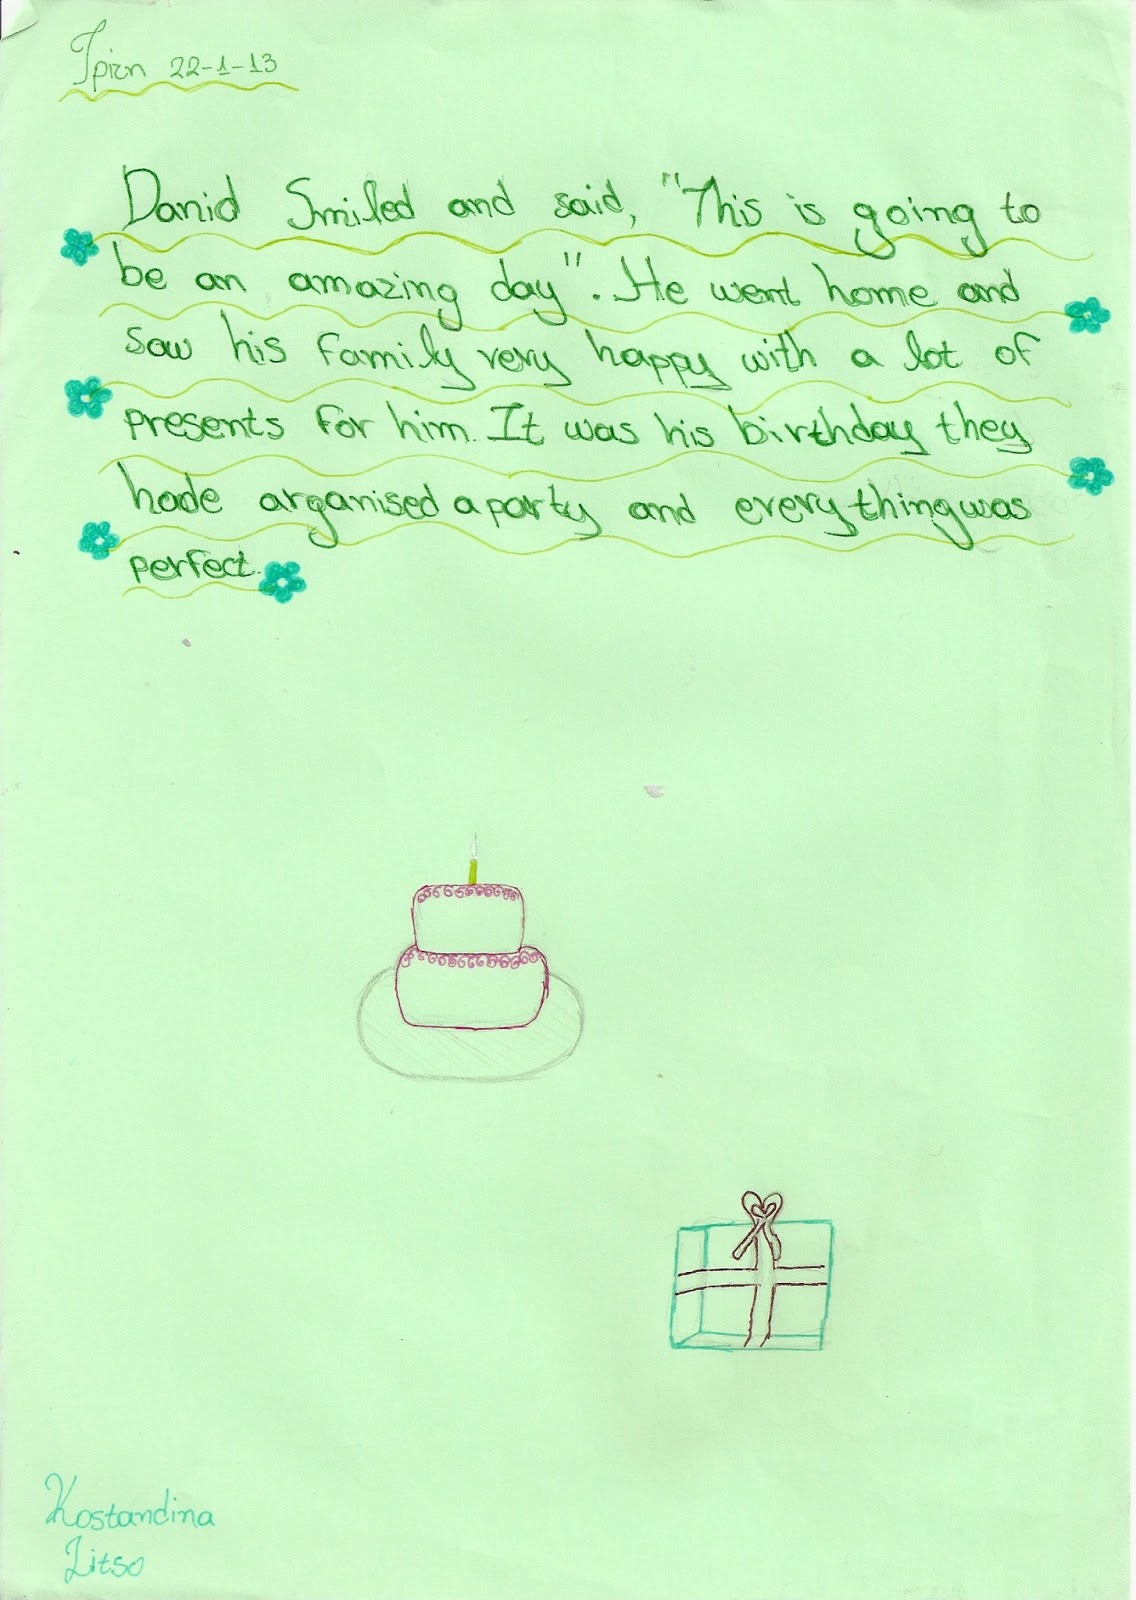 Τρίτη 22-1-13
David Smiled and said, "This is going to
be an amazing day". He went home and
saw his family very happy with a lot of
presents for him. It was his birthday they
hade arganised a party and everything was
perfect.
Kostandina
Litso